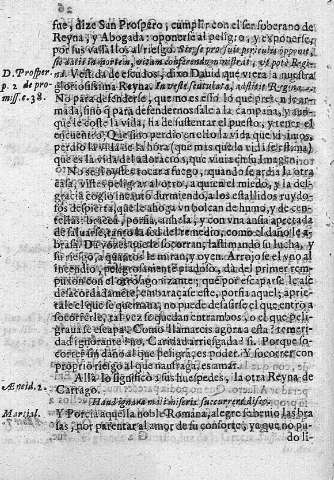 fue, dize San Prospero, cumplir con el ser soberano de
Reyna, y Abogada: oponerse al peligro, y exponerse,
por sus vassallos al riesgo.
D. Prosper.
p. 2 de pro-
miss. c. 38.
Vestida de escudos, dixo Dauid que viera a nuestra
gloriosissima Reyna.
No para defenderse, que no es esso lo que
sino para defendernos sale a la campana, y aun-
que le cueste la vida, ha de sustentar el puesto, y
encuentro. Que sino perdio en ello la vida que viuimos,
perdio la vida de la honra (que mas que la vida se estima)
que es la vida de la adoracion, que viuia en su Imagen.
No se os toca a fuego, quando se arde la otra
casa, visteis peligrar al otro, a quien el miedo, y la des-
gracia cogio incauto durmiendo, a los estallidos ruydo-
sos despierta, que le ahogan bolcan de humo, y de cen-
tellas: bracea, porfia, anhela, y con vna ansia apretada
de saluarse, tanto la sed del remedio, como el daño le a-
brasa. Da vozes que le socorran, lastimando su lucha, y
su riesgo, a quantos le miran, y oyen. Arrojose el vno al
incendio, peligrosamente piadoso, da del primer rem-
puxon con el otro agonizante; que por escaparse le ase
desacordadamente, embaraçase este, porfia aquel; aprie-
tale el que se quemaua, no puede desasirse el que entrò a
socorrerle, tal vez se quedan entrambos, o el que peli-
graua se escapa. Como llamareis agora a esta? temeri-
dad ignorante? no, Caridad arriesgada? si. Porque so-
correr sin daño al que peligra, es poder. Y socorrer con
proprio riesgo al que naufraga, es amar.
Allà lo significò a sus huespedes, la otra Reyna de
Cartago.
Æneid. 2.
Haud ignara mali miseris succurrere disco.
Martial.
Y Porcia aquella noble Romana, alegre se beuio las bra
sas, por parentar al amor de su consorte, ya que no pu-
do li-